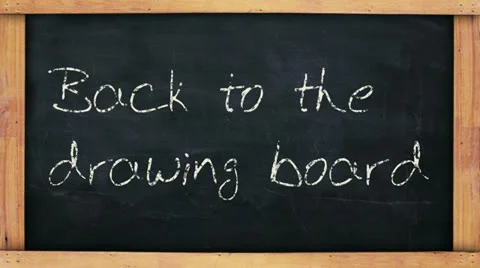 Back to the
drawing board